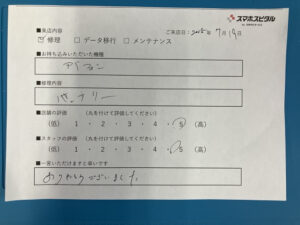 スマホスピタル
■来店内容
ご来店日：2025年 7月19日
☑修理 □データ移行 □メンテナンス
■お持ち込みいただいた機種
アイフォン
■修理内容
バッテリー
■店舗の評価 （丸を付けて評価してください）
（低） 1 ・ 2 ・ 3 ・ 4 ・ 5 （高）
■スタッフの評価 （丸を付けて評価してください）
（低） 1 ・ 2 ・ 3 ・ 4 ・ 5 （高）
■一言いただけますと幸いです
ありがとうございました